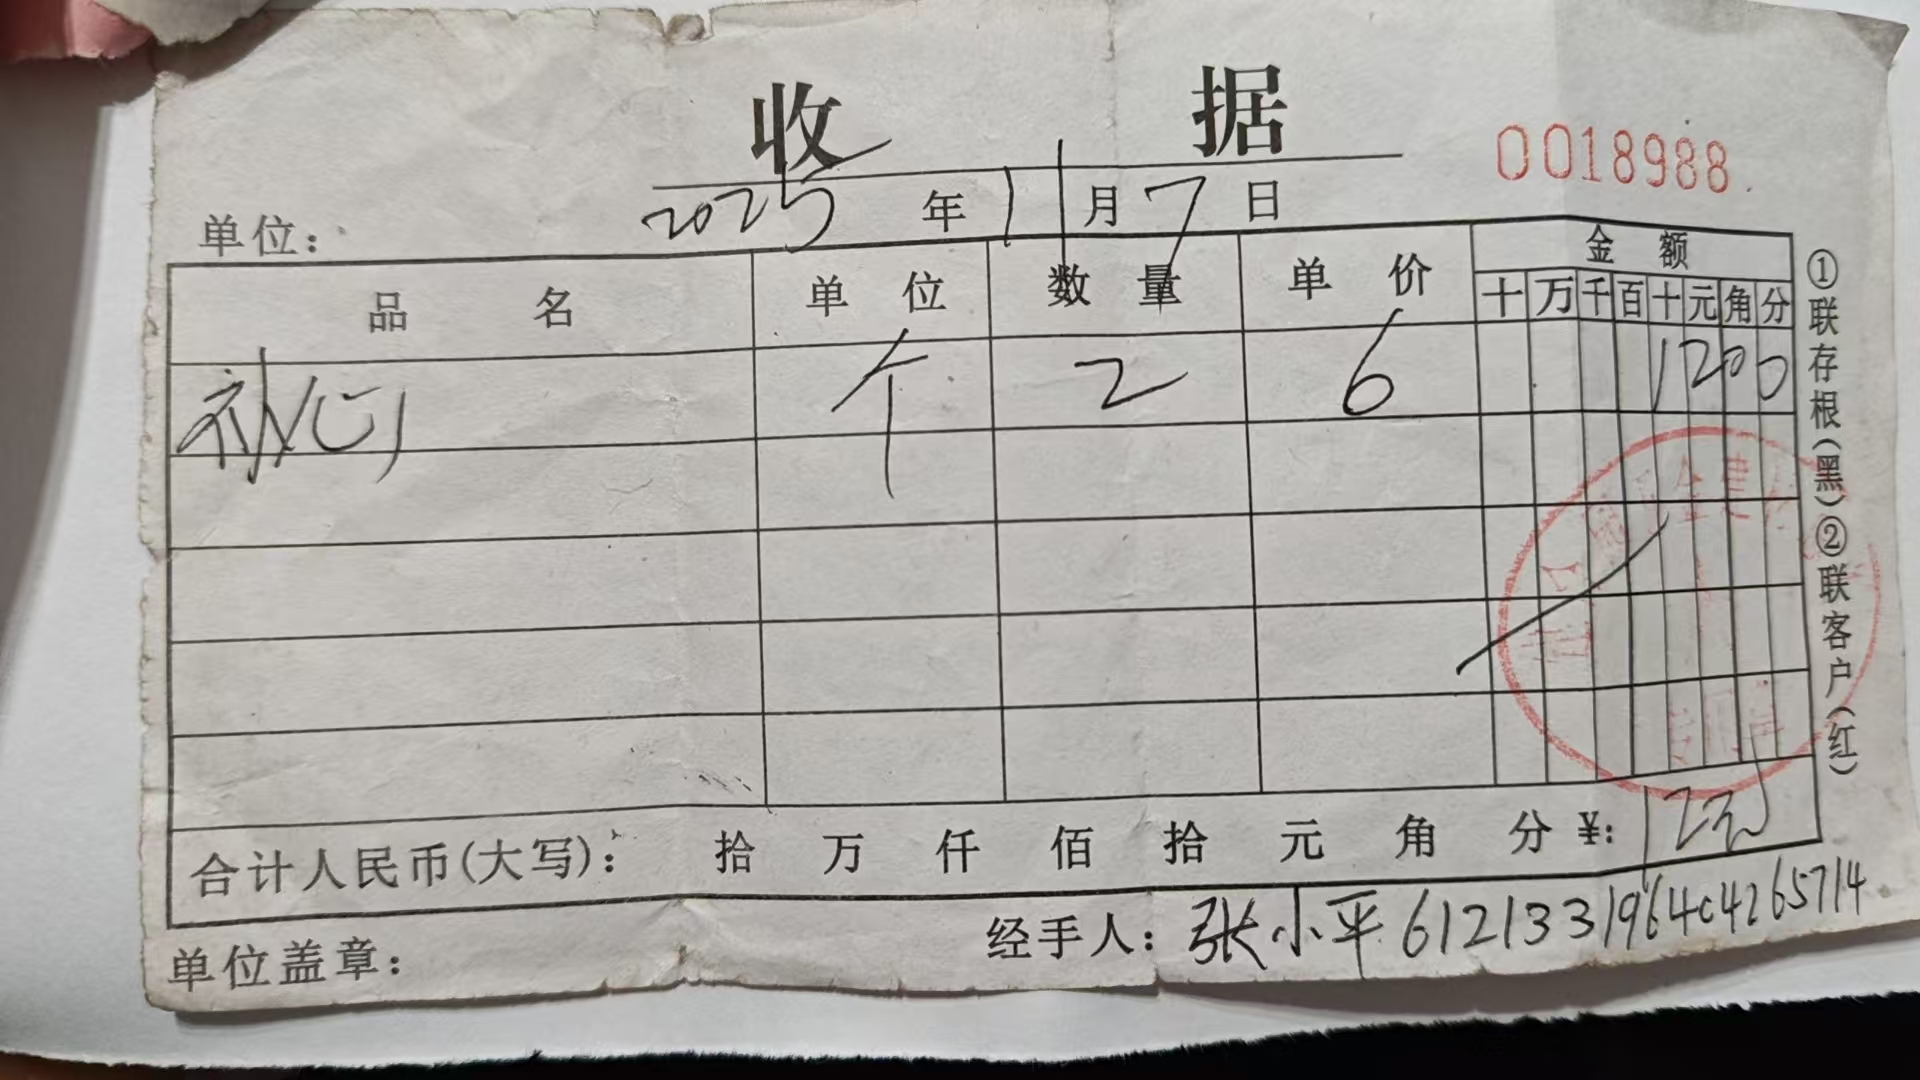 收 据
0018988
单位： 2025 年 11 月 7 日
品 名 单 位 数 量 单 价 金 额
十 万 千 百 十 元 角 分
补订 个 2 6 1200
合计人民币(大写)： 拾 万 仟 佰 拾 元 角 分 ¥: 12元
单位盖章： 经手人： 张小平 612133196404265714
①联存根(黑)②联客户(红)
金建
专用章